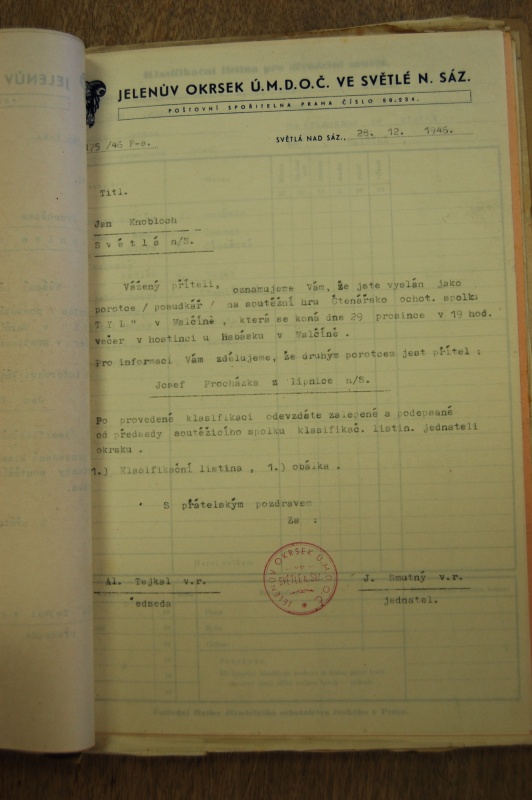 JELENŮV OKRSEK Ú.M.D.O.Č. VE SVĚTLÉ N. SÁZ.
POŠTOVNÍ SPOŘITELNA PRAHA ČÍSLO
175/46 P-a.
SVĚTLÁ NAD SÁZ., 28. 12. 1946.
Titl.
Jan Knobloch
Světlá n/S.
Vážený příteli, oznamujeme Vám, že jste vyslán jako
porotce / posudkář / na soutěžní hru Čtenářsko ochot. spolku
TYL" v Malčíně , která se koná dne 29 prosince v 19 hod.
večer v hostinci u v Malčíně .
Pro informaci Vám zdělujeme, že druhým porotcem jest přítel :
Josef Procházka z lipnice n/S.
Po provedené klasifikaci odevzdáte zalepené a podepsané
od předsedy soutěžícího spolku klasifikač. listin. jednateli
okrsku .
1.) Klasifikační listina , 1.) obálka .
S přátelským pozdravem
Za :
JELENŮV OKRŠEK Ú.M.D.O.Č.
Al. Tejkal v.r.
J. Smutný v.r.
edseda
jednatel.